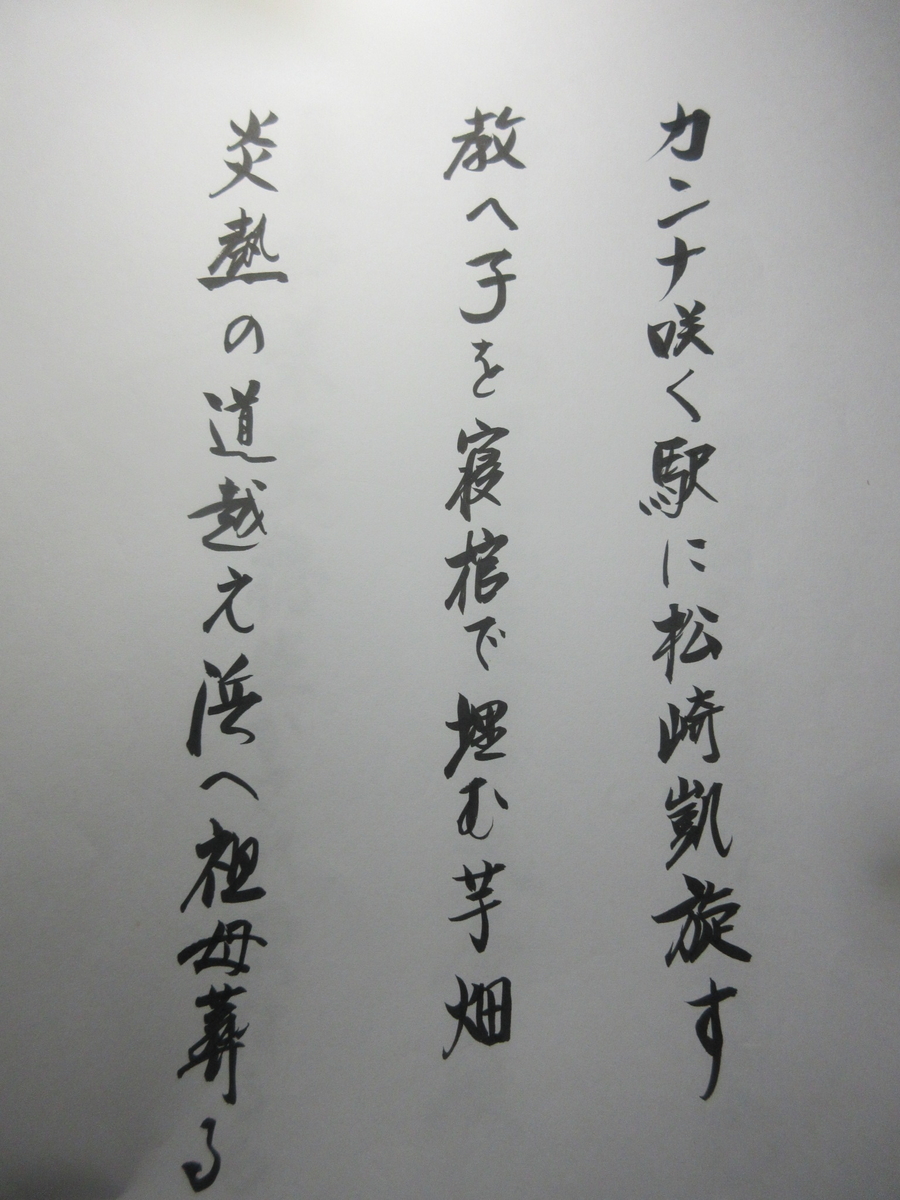 カンナ咲く駅に松崎凱旋す
教へ子を寝棺で埋む芋畑
炎熱の道越え浜へ祖母葬る